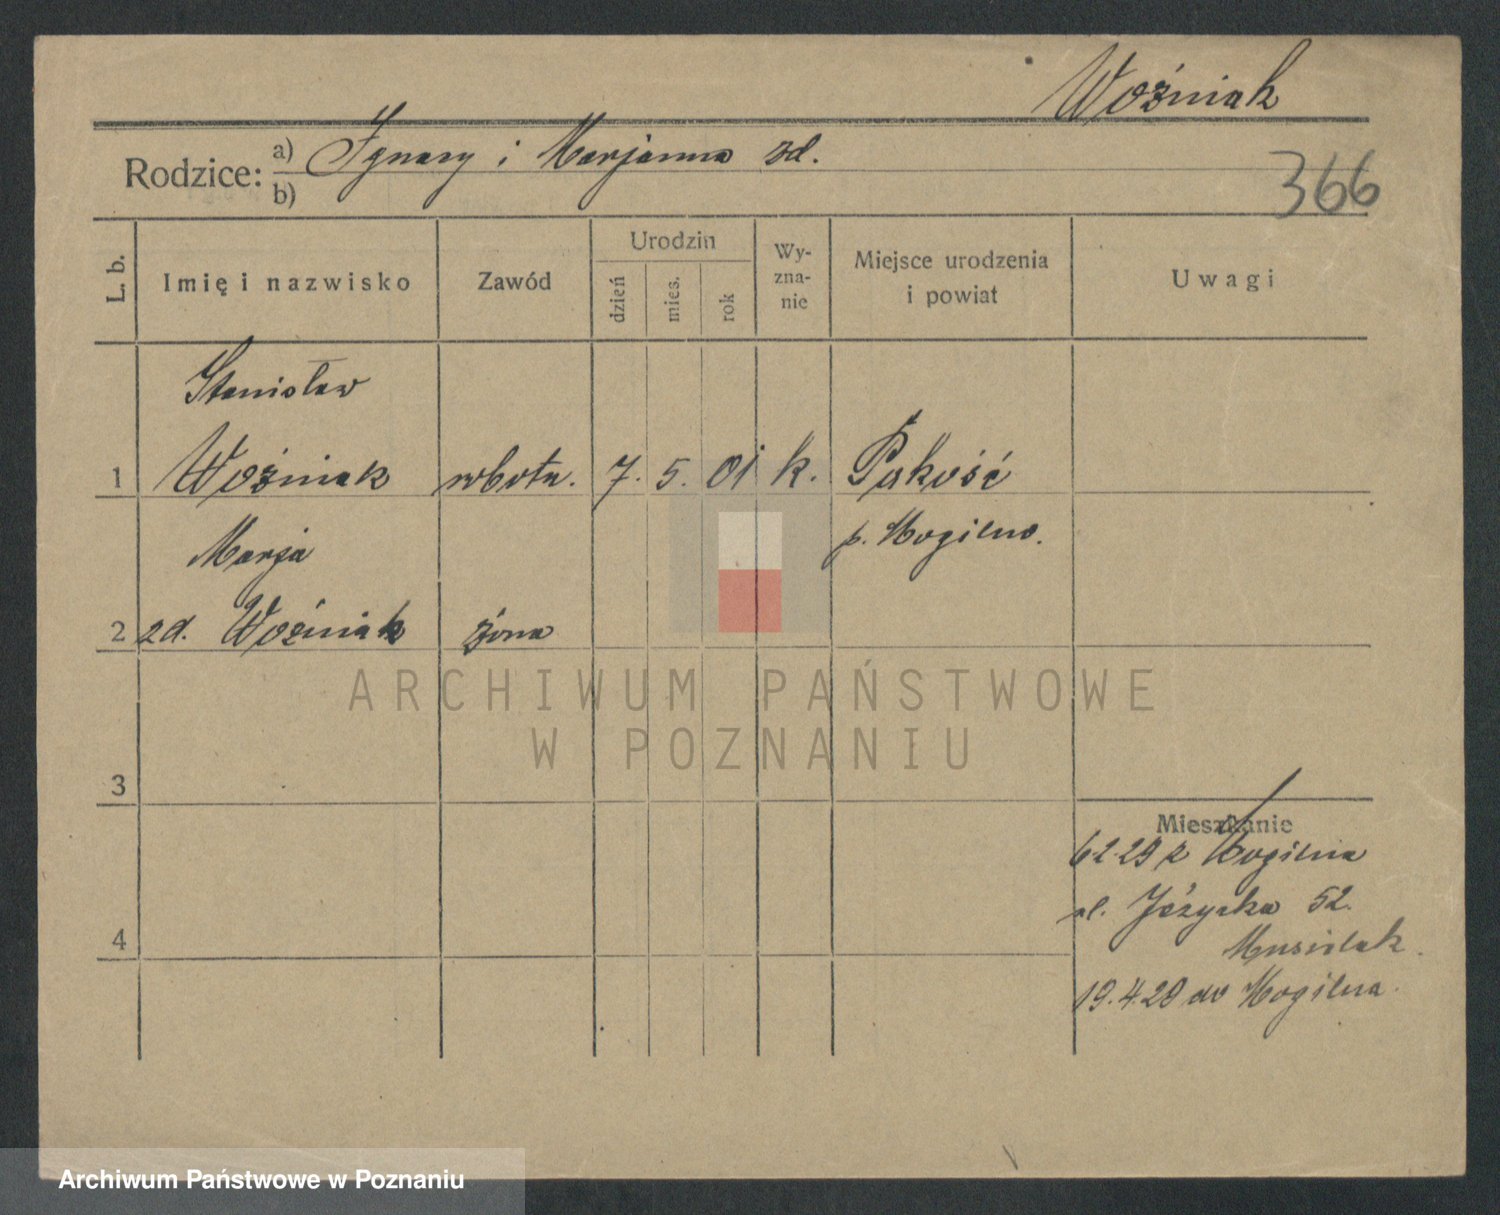 Woźniak
Rodzice: a) Ignacy i Marjanna zd.
b)
366
L. b.
Imię i nazwisko
Zawód
Urodzin
dzień
mies.
rok
Wy-
zna-
nie
Miejsce urodzenia
i powiat
Uwagi
Stanisław
1 Woźniak robotn. 7. 5. 01 k. Pakość
p. Mogilno.
Marja
2 zd. Woźniak żona
3
Mieszkanie
6 2 29 z Mogilna
ul. Jeżycka 52.
Musielak.
4
19.4.29 do Mogilna.
ARCHIWUM PAŃSTWOWE
W POZNANIU
Archiwum Państwowe w Poznaniu